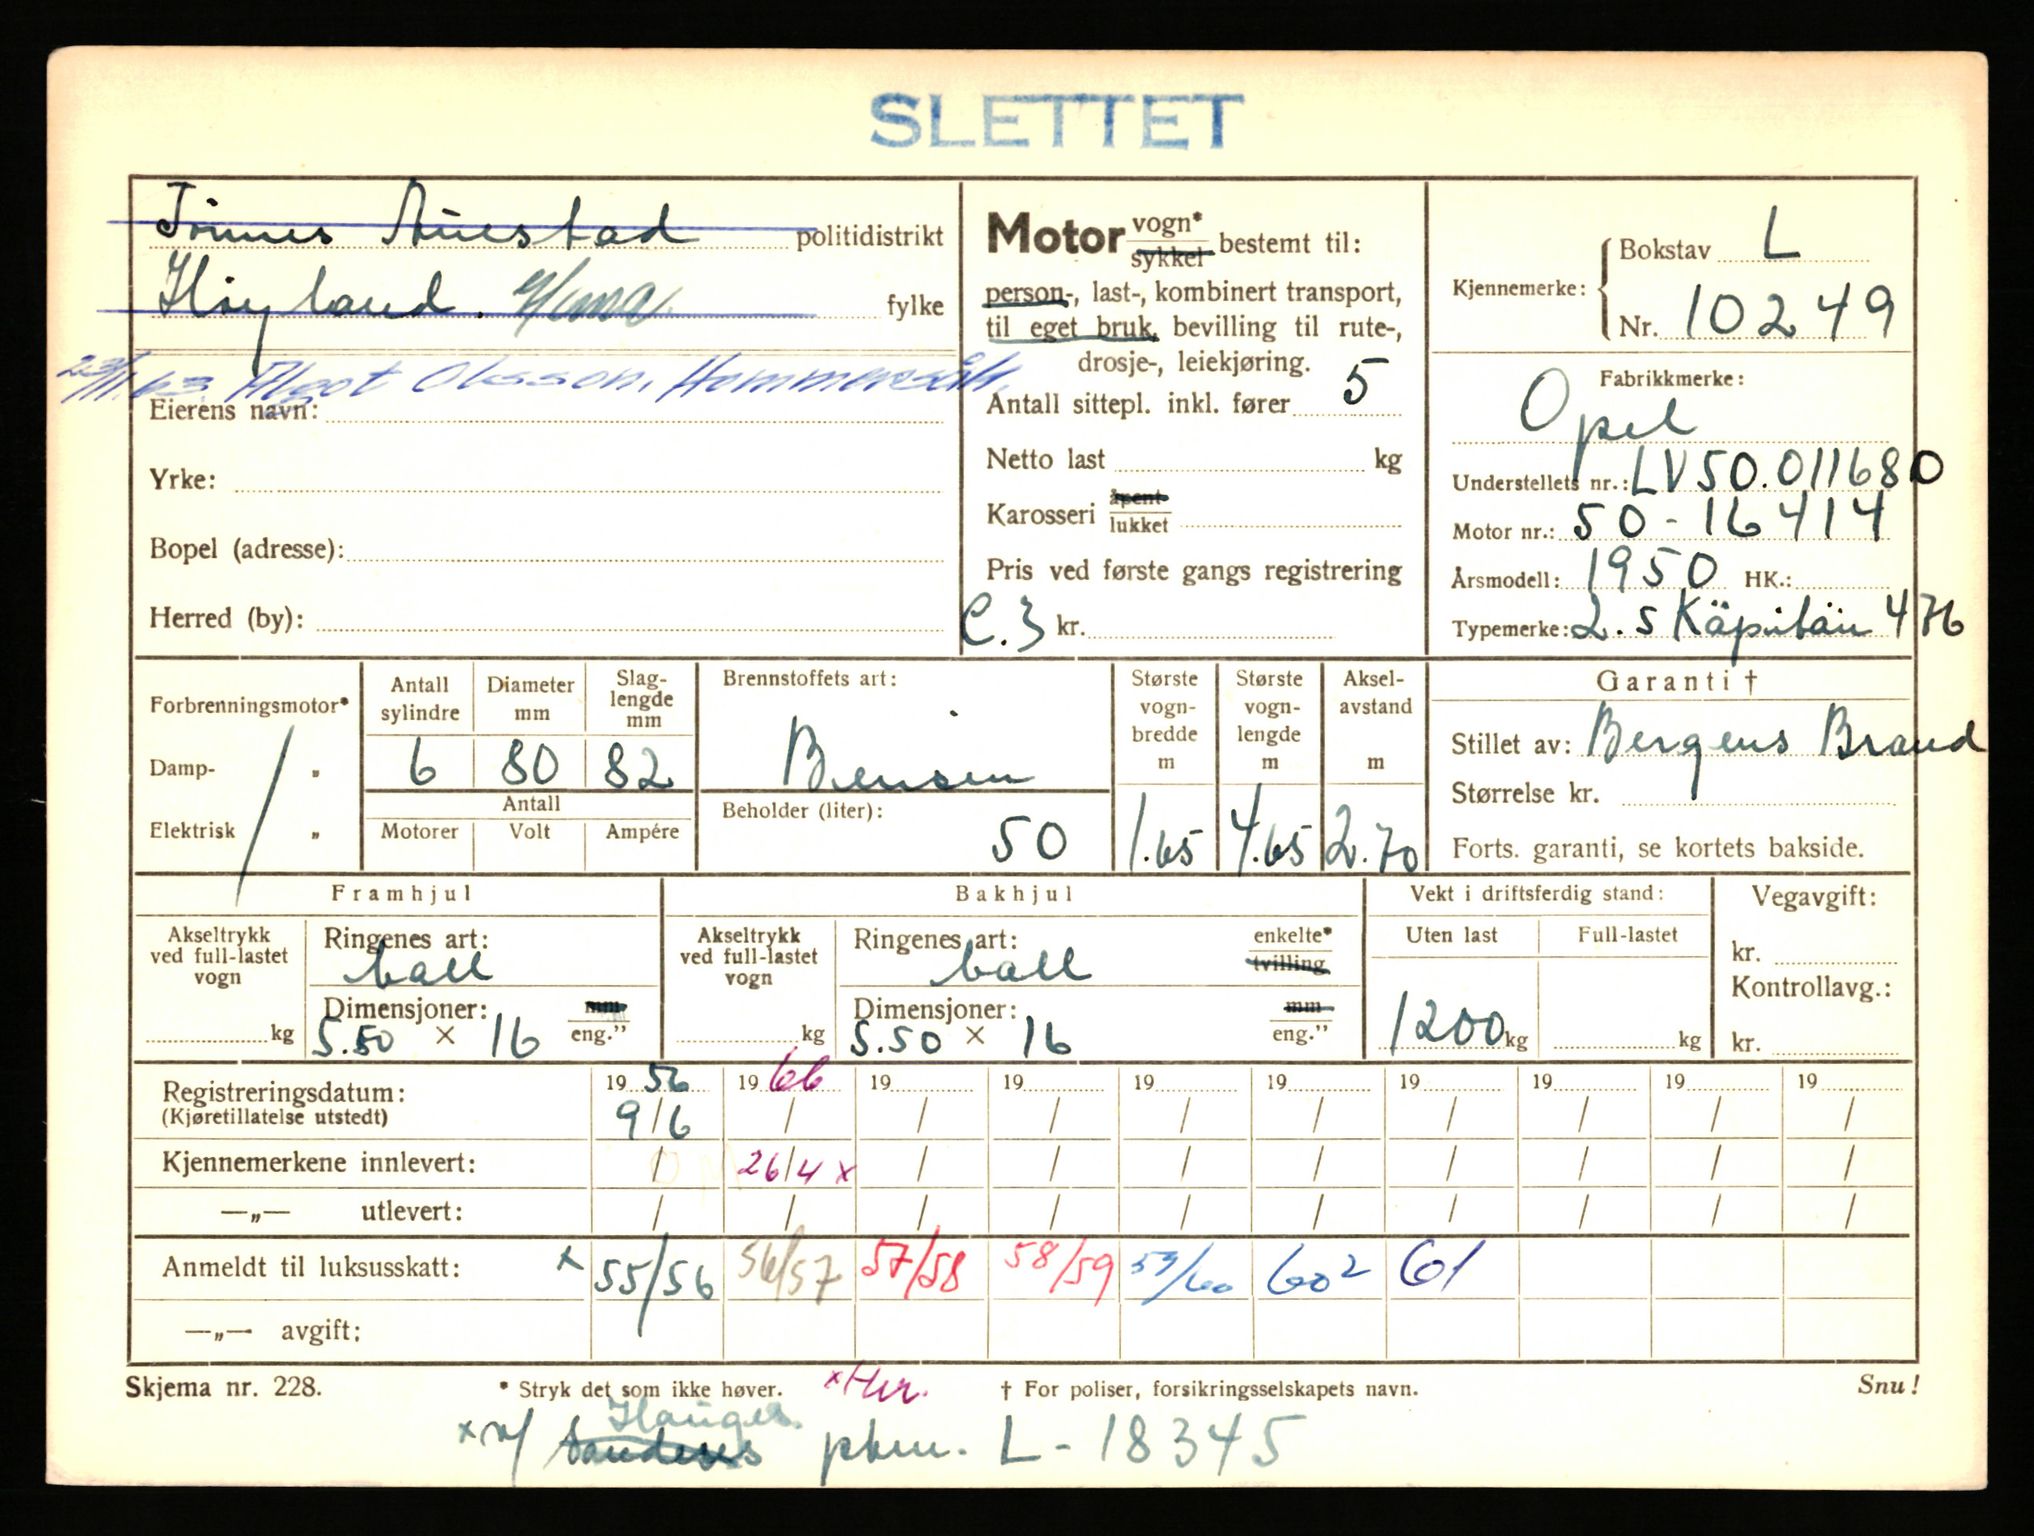 SLETTET
Tønnes Auestad politidistrikt
Høyland. fylke
23/1.63. Algot Olsson,
Eierens navn:
Yrke:
Bopel (adresse):
Herred (by):
Motor vogn* sykkel bestemt til:
person-, last-, kombinert transport,
til eget bruk, bevilling til rute-,
drosje-, leiekjøring.
Antall sittepl. inkl. fører 5
Netto last kg
Karosseri åpent lukket
Pris ved første gangs registrering
C.3 kr.
Kjennemerke: Bokstav L
Nr. 10249
Fabrikkmerke:
Opel
Understellets nr.: LV50.011680
Motor nr.: 50-16414
Årsmodell: 1950 HK.:
Typemerke: 2.5 Käpitän 476
Forbrenningsmotor*
Damp- "
Elektrisk "
Antall sylindre
6
Diameter mm
80
Slaglengde mm
82
Antall
Motorer Volt Ampére
Brennstoffets art:
Bensin
Beholder (liter):
50
Største vognbredde m
1.65
Største vognlengde m
4.65
Akselavstand m
2.70
Garanti †
Stillet av: Bergens Brand
Størrelse kr.
Forts. garanti, se kortets bakside.
Framhjul
Akseltrykk ved full-lastet vogn
kg
Ringenes art:
ball
Dimensjoner: mm
5.50 × 16 eng."
Bakhjul
Akseltrykk ved full-lastet vogn
kg
Ringenes art: enkelte*
ball tvilling
Dimensjoner: mm
5.50 × 16 eng."
Vekt i driftsferdig stand:
Uten last Full-lastet
1200 kg kg
Vegavgift:
kr.
Kontrollavg.:
kr.
Registreringsdatum: 19 56 19 66 19 19 19 19 19 19 19 19
(Kjøretillatelse utstedt) 9/6 / / / / / / / / /
Kjennemerkene innlevert: / 26/4 x / / / / / / / /
—„— utlevert: / / / / / / / / / /
Anmeldt til luksusskatt: x 55/56 56/57 57/58 58/59 59/60 60² 61
—„— avgift:
Skjema nr. 228. * Stryk det som ikke høver. x Her. † For poliser, forsikringsselskapets navn. Snu!
Hauges.
x v/ Sandens pkm. L-18345